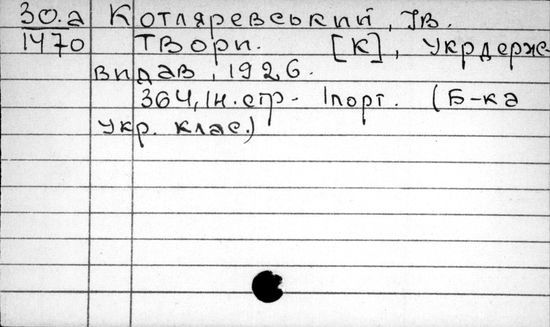 30.а Котляревський, Ів.
1470 Твори. [К], Укрдерж
видав, 1926.
364, Ін. стр. 1порт. (Б-ка
укр. клас.)